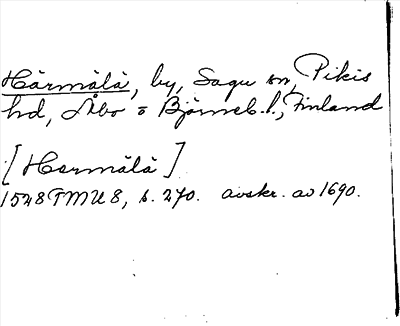 Härmälä, by, Sagu sn, Pikis
hd, Åbo o Björneb. l., Finland
[Hermälä]
1528 FMU 8, s. 270. avskr. av 1690.